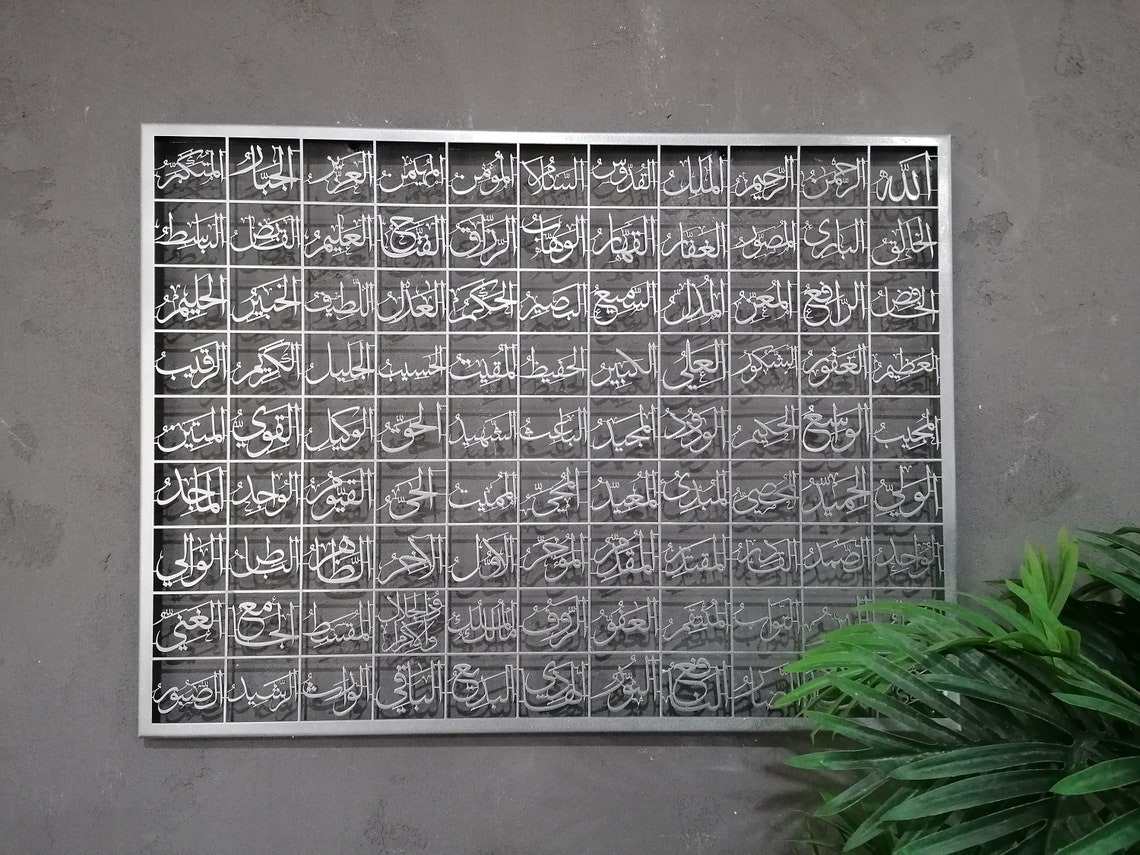 الله الرحمن الرحيم الملك القدوس السلام المؤمن المهيمن العزيز الجبار المتكبر
الخالق البارئ المصور الغفار القهار الوهاب الرزاق الفتاح العليم القابض الباسط
الخافض الرافع المعز المذل السميع البصير الحكم العدل اللطيف الخبير الحليم
العظيم الغفور الشكور العلي الكبير الحفيظ المقيت الحسيب الجليل الكريم الرقيب
المجيب الواسع الحكيم الودود المجيد الباعث الشهيد الحق الوكيل القوي المتين
الولي الحميد المحصي المبدئ المعيد المحيي المميت الحي القيوم الواجد الماجد
الواحد الصمد القادر المقتدر المقدم المؤخر الأول الآخر الظاهر الباطن الوالي
التواب المنتقم العفو الرؤوف مالك الملك ذو الجلال والإكرام المقسط الجامع الغني
الضار النافع النور الهادي البديع الباقي الوارث الرشيد الصبور